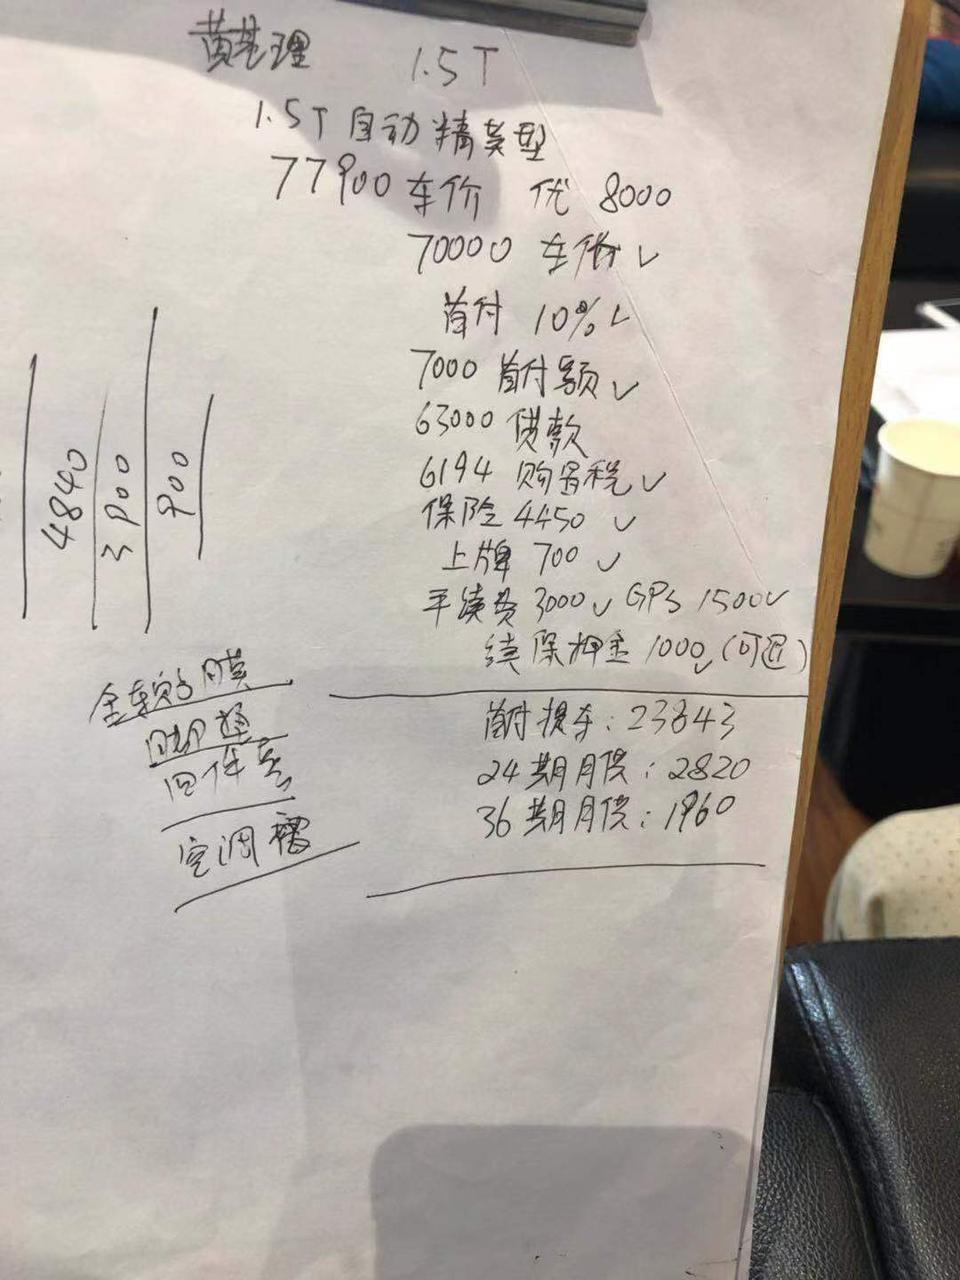 黄基理 1.5T
1.5T 自动 精英型
77900 车价 优 8000
70000 车价 ✓
首付 10% ✓
7000 首付额 ✓
63000 贷款
6194 购置税 ✓
保险 4450 ✓
上牌 700 ✓
手续费 3000 ✓ GPS 1500 ✓
续保押金 1000 ✓ (可退)
首付提车: 23843
24期月供: 2820
36期月供: 1960
4840
3900
900
全车贴膜
脚垫
四件套
空调褶